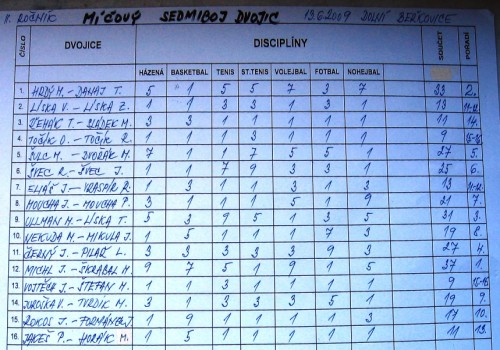 V. ROČNÍK MÍČOVÝ SEDMIBOJ DVOJIC 13.6.2009 DOLNÍ BEŘKOVICE
ČÍSLO DVOJICE DISCIPLÍNY SOUČET POŘADÍ
HÁZENÁ BASKETBAL TENIS ST.TENIS VOLEJBAL FOTBAL NOHEJBAL
1. HRDÝ M. - DANAJ T. 5 1 5 5 7 3 7 33 2.
2. LÍSKA V. - LÍSKA Z. 1 1 3 3 1 3 1 13 11-12.
3. ŘEHÁK T. - SLÁDEK M. 3 3 1 1 1 1 1 11 14.
4. TOČÍK O. - TOČÍK R. 1 1 1 3 1 1 1 9 15-16.
5. ŠULC M. - DVOŘÁK M. 7 1 1 7 5 5 1 27 5.
6. ŠVEC R. - ŠVEC J. 1 1 7 9 3 3 1 25 6.
7. ELIÁŠ J. - KRASAŘ R. 1 3 1 1 3 1 3 13 11-12.
8. MOUCHA J. - MOUCHA P. 3 1 1 1 5 1 9 21 7.
9. ULLMAN M. - LÍSKA T. 5 3 9 5 1 3 5 31 3.
10. NEKUDA M. - MIKULA J. 1 5 1 1 1 7 3 19 8.
11. ČERNÝ J. - PILAŘ L. 3 3 3 3 3 9 3 27 4.
12. MICHL J. - ŠKRABAL M. 9 7 5 1 9 1 5 37 1.
13. VOJTĚCH J. - ŠTEFAN M. 1 3 1 1 1 1 1 9 15-16.
14. JUROŠKA V. - TVRDÍK M. 3 1 3 3 3 5 1 19 9.
15. ROKOS J. - FORMÁNEK J. 1 9 1 1 1 1 3 17 10.
16. JAKEŠ P. - HORÁK M. 1 5 1 1 1 1 1 11 13.